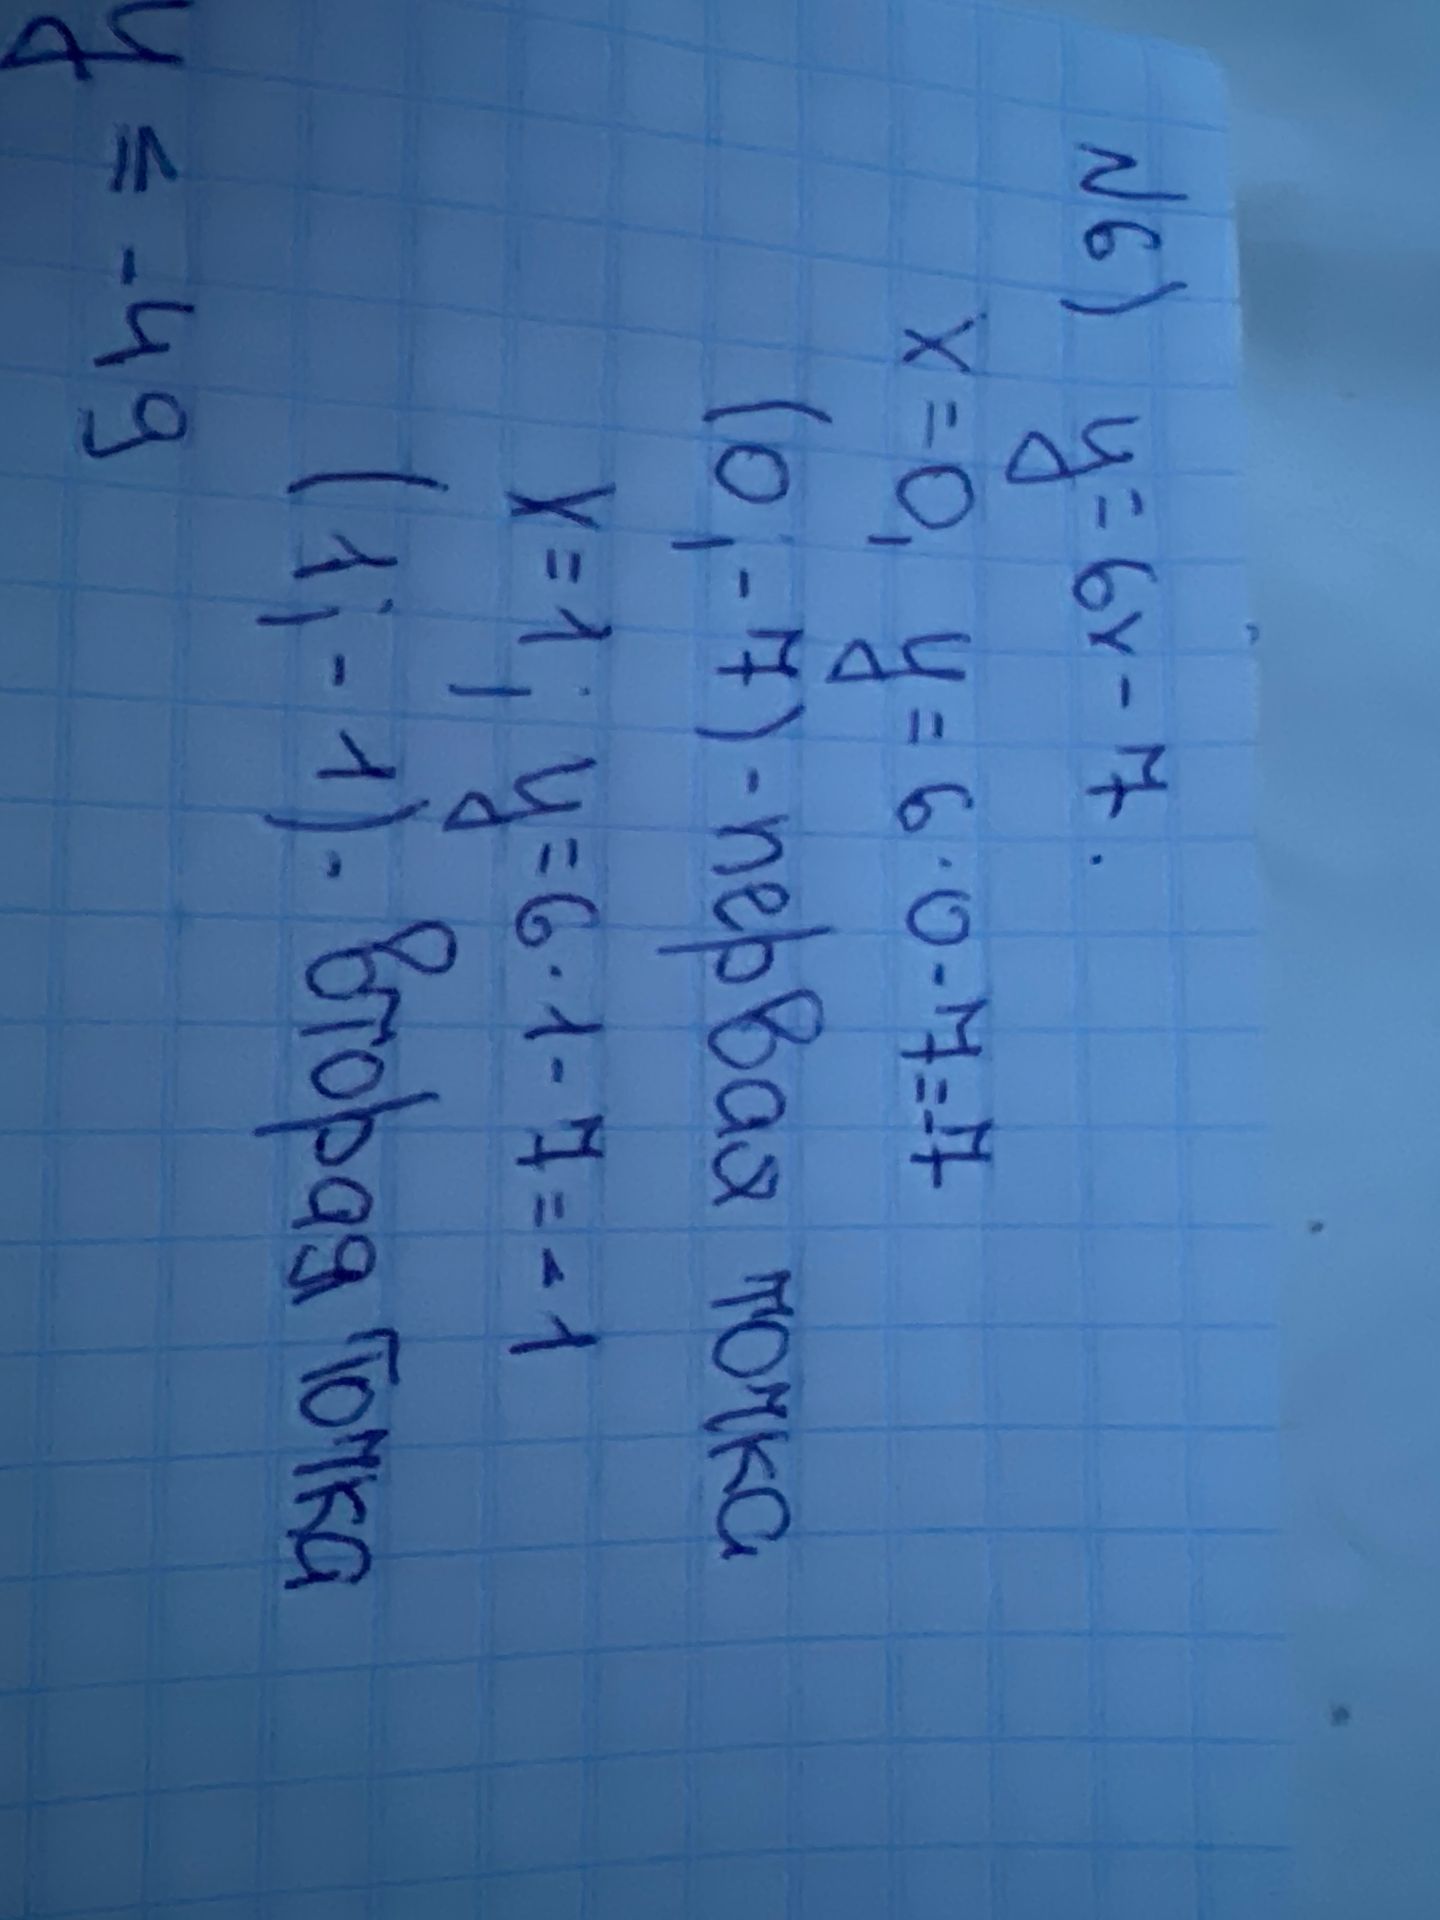 N6) y=6x-7.
x=0, y=6·0-7=-7
(0,-7)-первая точка
x=1; y=6·1-7=-1
(1;-1)- вторая точка
y = -49